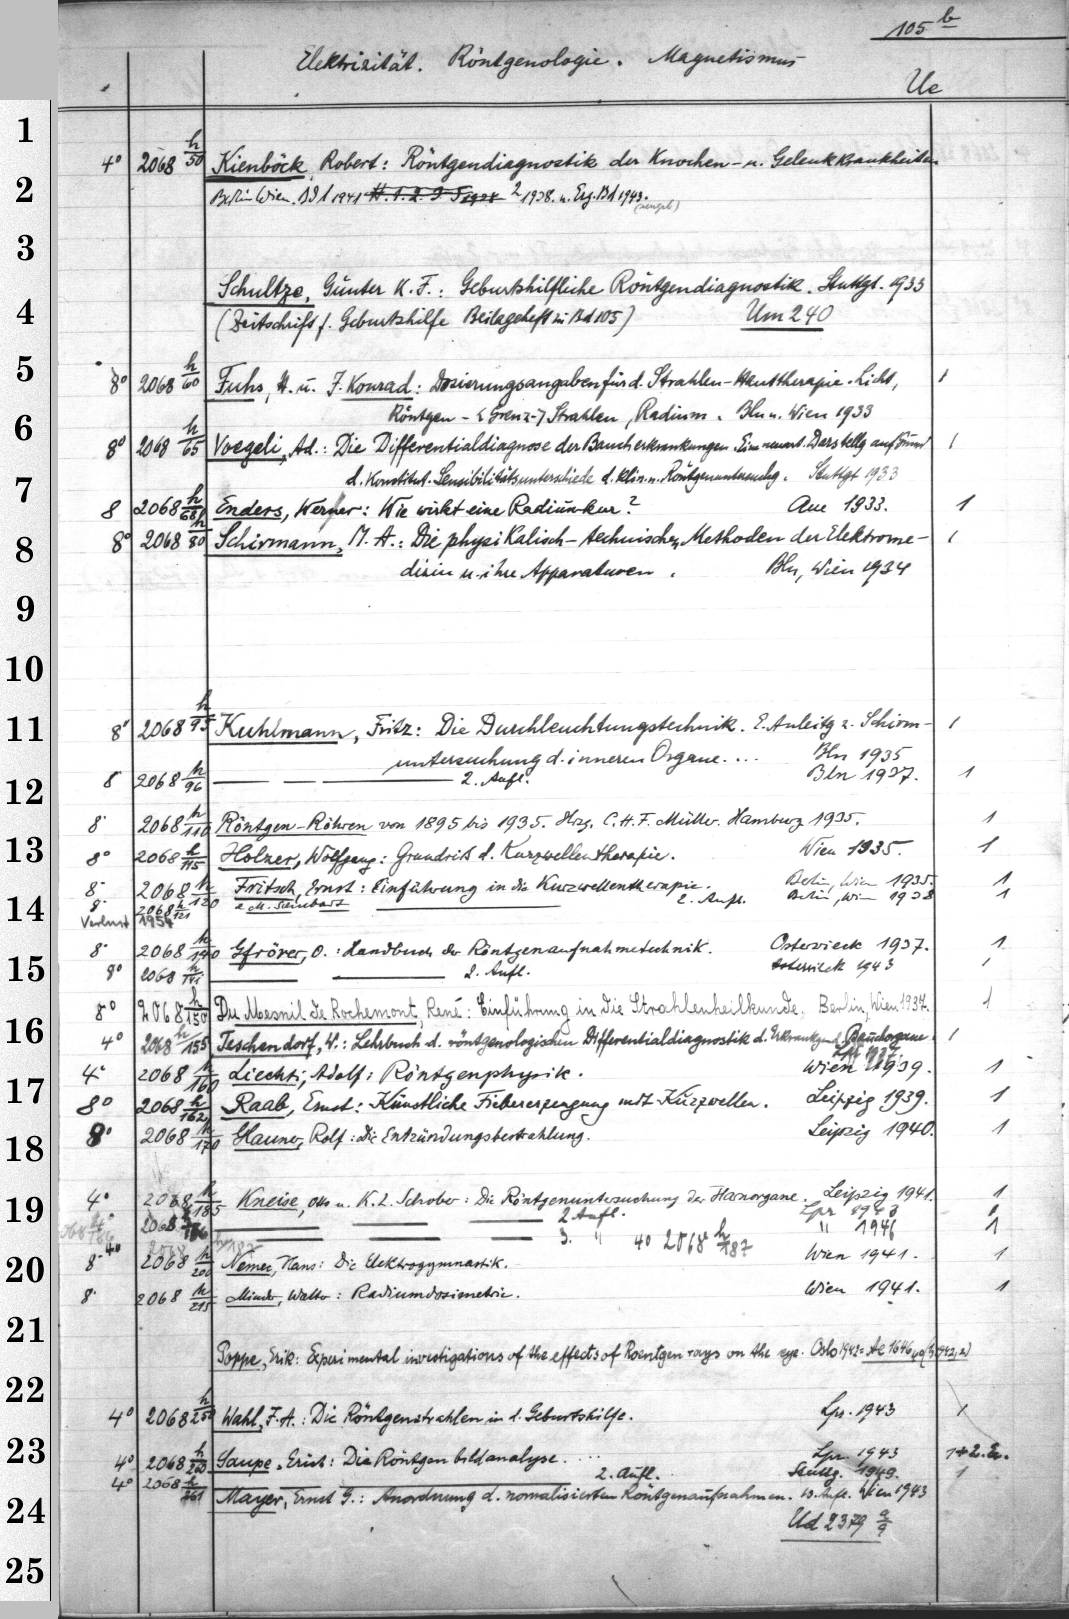 105 b
Elektrizität. Röntgenologie. Magnetismus
Ue
1
4° 2068 h/50 Kienböck, Robert: Röntgendiagnostik der Knochen- u. Gelenkkrankheiten
2
Berlin Wien. Bd 1 1941 H. 1. 2. 3. 5 1934 2 1938. u. Erg. Bd 1943.
3
Schultze, Günter K. F.: Geburtshilfliche Röntgendiagnostik. Stuttgt. 1933
4
(Zeitschrift f. Geburtshilfe Beilageheft zu Bd 105) Um 240
5
8° 2068 h/60 Fuhs, H. u. J. Konrad: Dosierungsangaben für d. Strahlen-Hauttherapie. Licht, 1
Röntgen- [Grenz-] Strahlen, Radium. Bln u. Wien 1933
6
8° 2068 h/65 Voegeli, Ad.: Die Differentialdiagnose der Baucherkrankungen. Eine neuart. Darstellg auf Grund 1
d. Konstitut. Sensibilitätsunterschiede d. klin. u. Röntgenuntersuchg. Stuttgt 1933
7
8 2068 h/68 Enders, Werner: Wie wirkt eine Radiumkur? Aue 1933. 1
8
8° 2068 h/80 Schirmann, M. A.: Die physikalisch-technischen Methoden der Elektrome- 1
dizin u. ihre Apparaturen. Bln, Wien 1934
9
10
11
8° 2068 h/95 Kuhlmann, Fritz: Die Durchleuchtungstechnik. E. Anleitg z. Schirm- 1
untersuchung d. inneren Organe. ... Bln 1935
12
8° 2068 h/96 — — — 2. Aufl. Bln 1937. 1
8° 2068 h/110 Röntgen-Röhren von 1895 bis 1935. Hrsg. C. H. F. Müller. Hamburg 1935. 1
13
8° 2068 h/115 Holzer, Wolfgang: Grundriß d. Kurzwellentherapie. Wien 1935. 1
8° 2068 h/120 Fritsch, Ernst: Einführung in die Kurzwellentherapie. Berlin, Wien 1935. 1
14
8° 2068 h/121 u. M. Schubart — 2. Aufl. Berlin, Wien 1938 1
Verlust 1954
8° 2068 h/140 Gfrörer, O.: Handbuch der Röntgenaufnahmetechnik. Osterwieck 1937. 1
15
8° 2068 h/141 — 2. Aufl. Osterwieck 1943 1
8° 2068 h/150 Du Mesnil de Rochemont, René: Einführung in die Strahlenheilkunde. Berlin, Wien 1937. 1
16
4° 2068 h/155 Teschendorf, W.: Lehrbuch d. röntgenologischen Differentialdiagnostik d. Erkrankgen d. Bauchorgane. 1
Lpz 1937.
4° 2068 h/160 Liechti, Adolf: Röntgenphysik. Wien 1939. 1
17
8° 2068 h/162 Raab, Ernst: Künstliche Fiebererzeugung mit Kurzwellen. Leipzig 1939. 1
18
8° 2068 h/170 Glauner, Rolf: Die Entzündungsbestrahlung. Leipzig 1940. 1
19
4° 2068 h/185 Kneise, Otto u. K. L. Schober: Die Röntgenuntersuchung der Harnorgane. Leipzig 1941. 1
2068 h/186 — — — 2. Aufl. Lpz 1943
— — — 3. " 4° 2068 h/187 " 1946 1
20
8° 2068 h/200 Nemec, Hans: Die Elektrogymnastik. Wien 1941. 1
8° 2068 h/215 Minder, Walter: Radiumdosimetrie. Wien 1941. 1
21
Poppe, Erik: Experimental investigations of the effects of Roentgen rays on the eye. Oslo 1942 = Ae 1646
22
4° 2068 h/250 Wahl, F. A.: Die Röntgenstrahlen in d. Geburtshilfe. Lpz. 1943 1
23
4° 2068 h/260 Saupe, Erich: Die Röntgenbildanalyse. ... Lpz. 1943 1+2. Ex.
4° 2068 h/261 2. Aufl. Stuttg. 1949. 1
24
Mayer, Ernst G.: Anordnung d. normalisierten Röntgenaufnahmen. Aufl. Wien 1943
Ud 2379 a/9
25